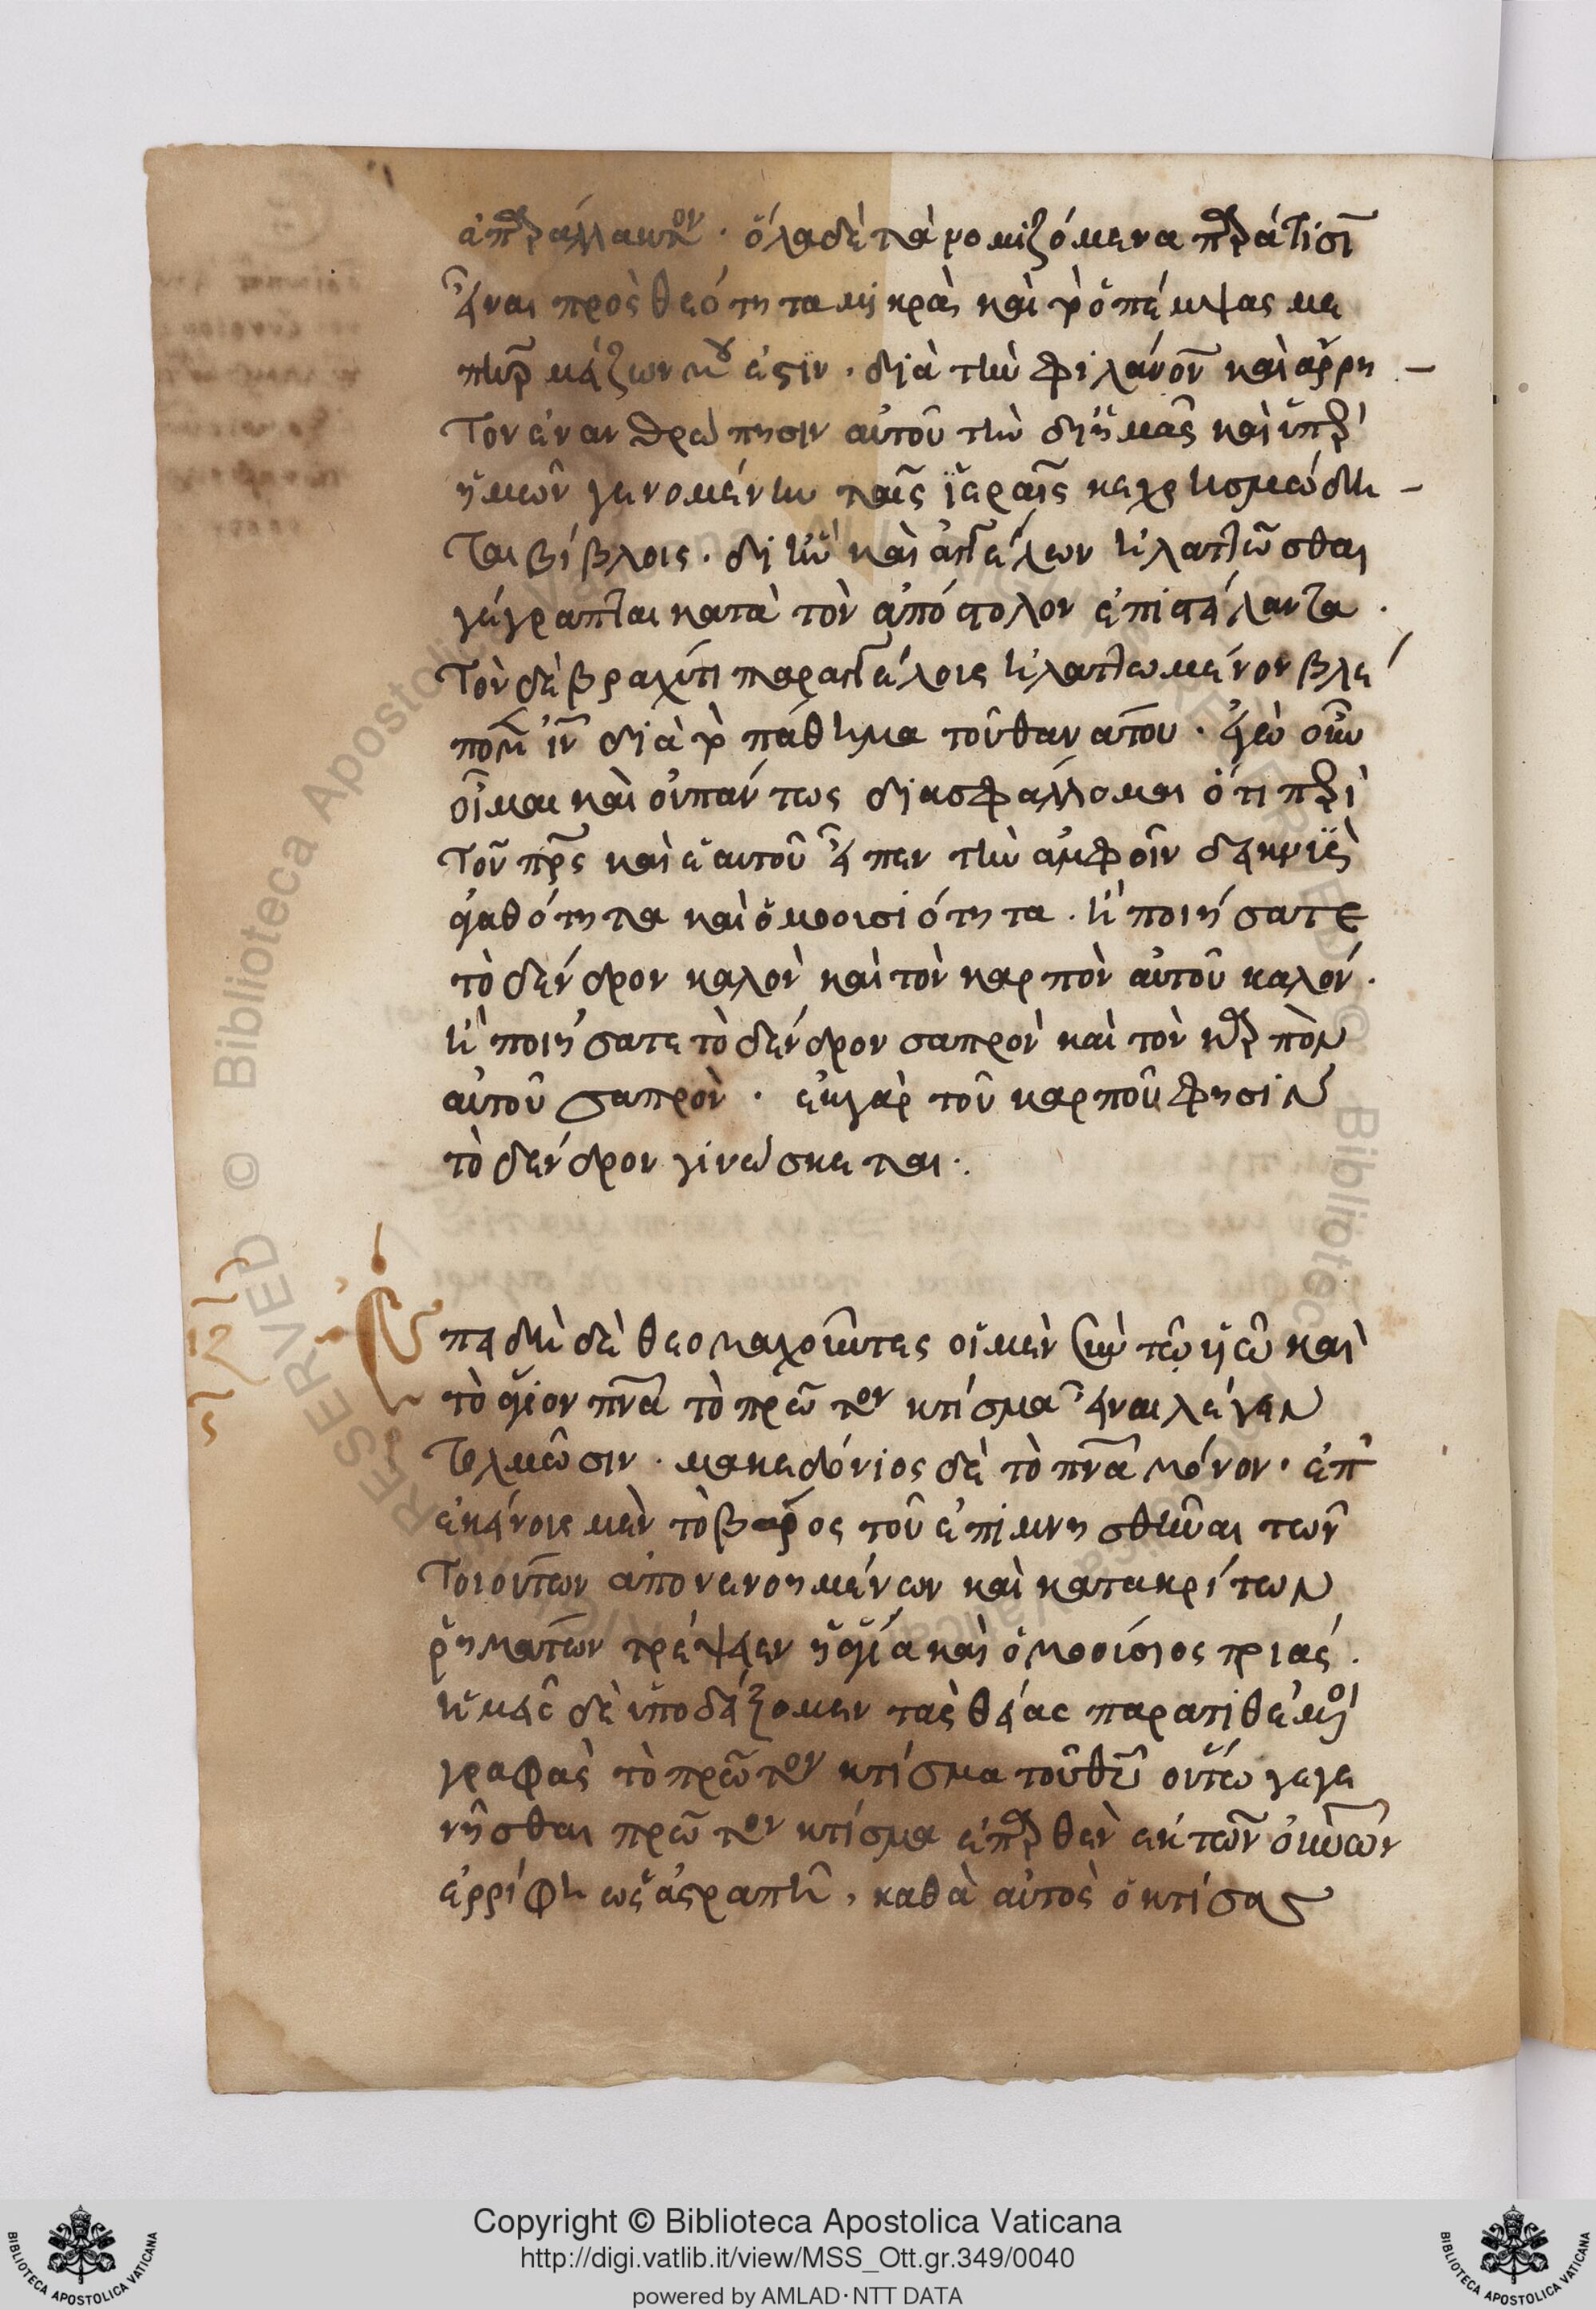 ἀπαράλλακτον · ὅλα δὲ τὰ νομιζόμενα παρά τισιν
εἶναι πρὸς θεότητα μικρὰ καὶ τὸ ὁ πέμψας με
πατὴρ μείζων μού ἐστιν · διὰ τὴν φιλάνθρωπον καὶ ἄρρη
τον ἐνανθρώπησιν αὐτοῦ τὴν δι' ἡμᾶς καὶ ὑπὲρ
ἡμῶν γενομένην ταῖς ἱεραῖς κεχρησμώδη
ται βίβλοις · δι' ἣν καὶ ἀγγέλων ἠλαττῶσθαι
γέγραπται κατὰ τὸν ἀπόστολον ἐπιστείλαντα ·
τὸν δὲ βραχύ τι παρ' ἀγγέλοις ἠλαττωμένον βλέ
πομεν ἰν διὰ τὸ πάθημα τοῦ θανάτου · ἐγὼ οὖν
οἶμαι καὶ οὐ πάντως διασφάλλομαι ὅτι περὶ
τοῦ πρς καὶ ἑαυτοῦ εἶπεν τὴν ἀμφοῖν δεικνὺς
ἀγαθότητα καὶ ὁμοουσιότητα · ἢ ποιήσατε
τὸ δένδρον καλὸν καὶ τὸν καρπὸν αὐτοῦ καλόν ·
ἢ ποιήσατε τὸ δένδρον σαπρὸν καὶ τὸν καρπὸν
αὐτοῦ σαπρὸν · ἐκ γὰρ τοῦ καρποῦ φησὶν
τὸ δένδρον γινώσκεται ·
Ἐπειδὴ δὲ θεομαχοῦντες οἱ μὲν σὺν τῷ υἱῷ καὶ
τὸ ἅγιον πνα τὸ πρῶτον κτίσμα εἶναι λέγειν
τολμῶσιν · μακεδόνιος δὲ τὸ πνα μόνον · ἐπ'
ἐκείνοις μὲν τὸ βάρος τοῦ ἐπιμνησθῆναι τῶν
τοιούτων ἀπονενοημένων καὶ κατακρίτων
ῥημάτων τρέψειεν ἡ ἁγία καὶ ὁμοούσιος τριάς ·
ἡμεῖς δὲ ὑποδείξομεν τὰς θείας παρατιθέμενοι
γραφὰς τὸ πρῶτον κτίσμα τοῦ θυ οὕτω γεγε
νῆσθαι πρῶτον κτίσμα ἐπαρθὲν ἐκ τῶν οὐνῶν
ἐρρίφη ὡς ἀστραπὴ, καθὰ αὐτὸς ὁ κτίσας
Copyright © Biblioteca Apostolica Vaticana
http://digi.vatlib.it/view/MSS_Ott.gr.349/0040
powered by AMLAD·NTT DATA